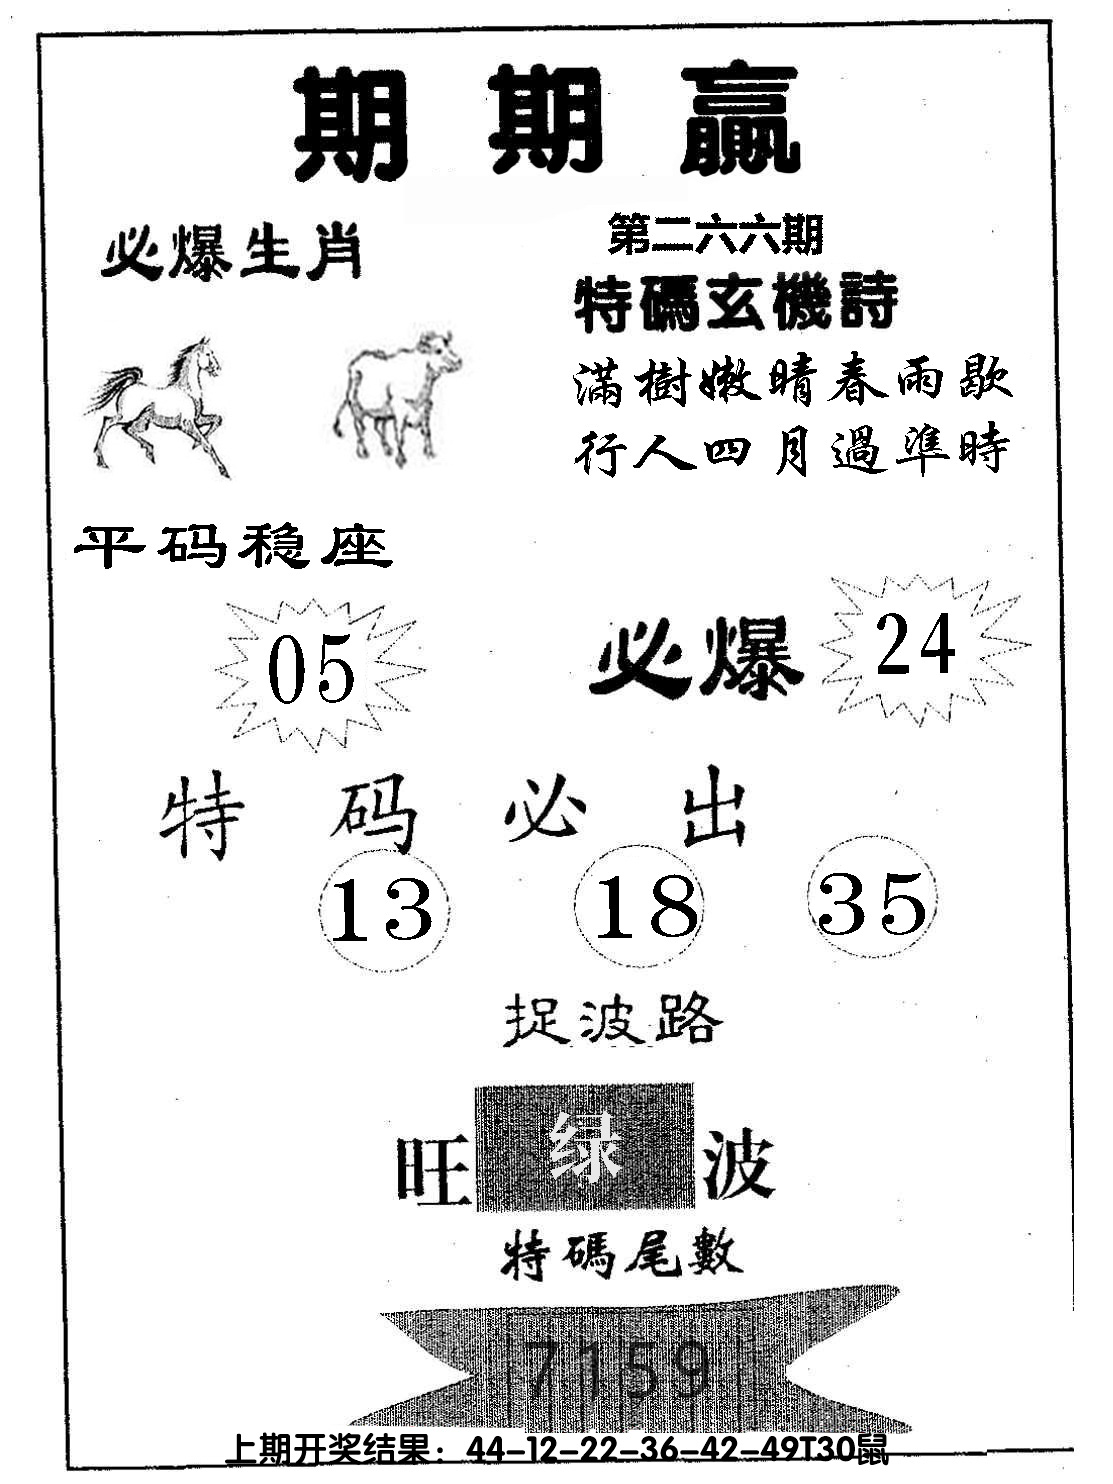 期期赢
必爆生肖
第二六六期
特碼玄機詩
滿樹嫩晴春雨歇
行人四月過準時
平码稳座
05
必爆 24
特码必出
13 18 35
捉波路
旺 绿 波
特碼尾數
7159
上期开奖结果：44-12-22-36-42-49T30鼠